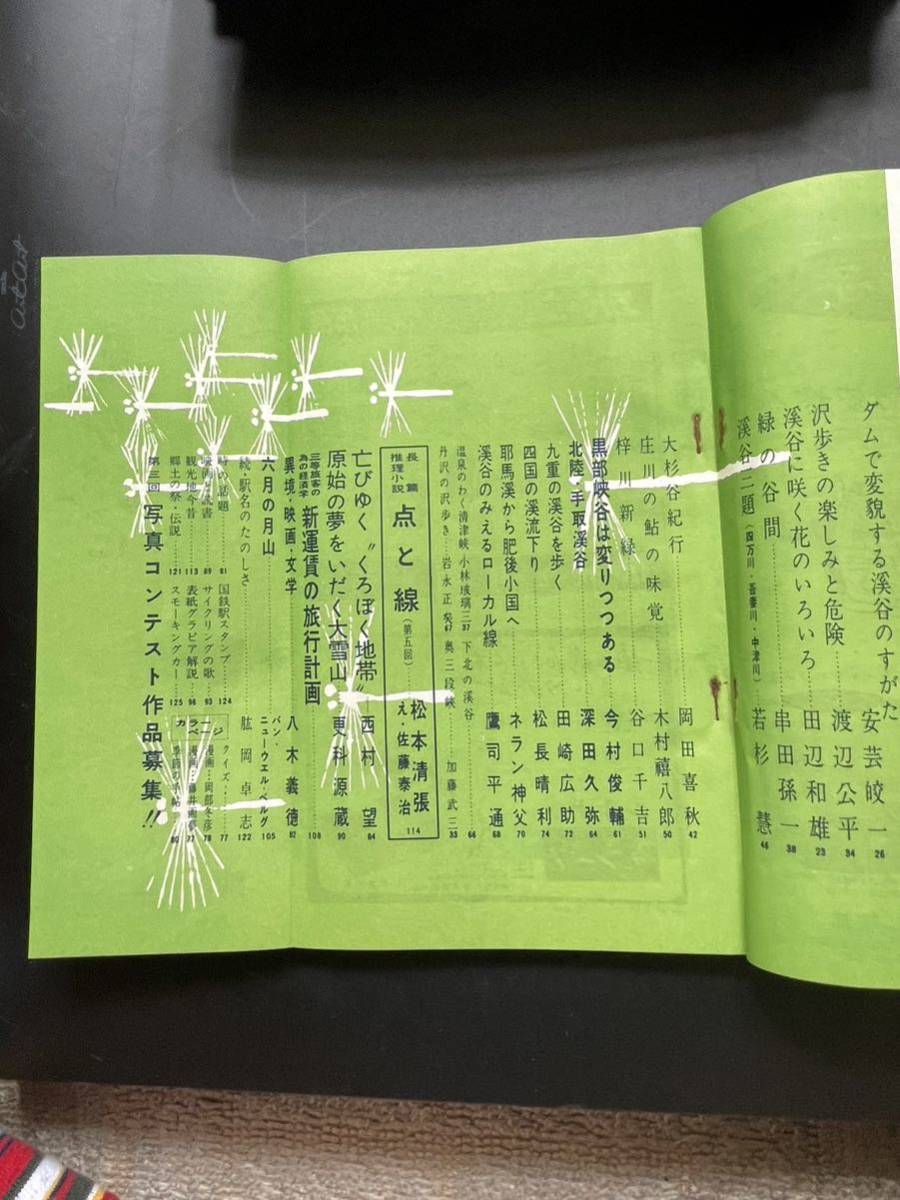 ダムで変貌する溪谷のすがた 安芸皎一 26
沢歩きの楽しみと危険 渡辺公平 34
溪谷に咲く花のいろいろ 田辺和雄 23
緑の谷間 串田孫一 38
溪谷三題(四万川・吾妻川・中津川) 若杉慧 46
大杉谷紀行 岡田喜秋 42
庄川の鮎の味覚 木村禧八郎 50
梓川新緑 谷口千吉 51
黒部峡谷は変りつつある 今村俊輔 61
北陸・手取溪谷 深田久弥 64
九重の溪谷を歩く 田崎広助 72
四国の溪流下り 松長晴利 74
耶馬溪から肥後小国へ ネラン神父 70
溪谷のみえるローカル線 鷹司平通 68
温泉のわく清津峡 小林玻璃三 37 下北の溪谷 66
丹沢の沢歩き 岩永正 67 奥三段峡 加藤武三 33
長篇推理小説 点と線(第五回) 松本清張 え・佐藤泰治 114
亡びゆく〝くろぼく地帯〟 西村望 84
原始の夢をいだく大雪山 更科源蔵 90
三等旅客の為の経済学 新運賃の旅行計画 108
異境・映画・文学 八木義徳 82
六月の月山 バン・ニューウエル・ベルグ 105
続・駅名のたのしさ 肱岡卓志 122
時の話題 81 国鉄駅スタンプ 124
映画と読書 89 サイクリングの歌 93
観光地今昔 113 表紙グラビア解説 96
郷土の祭・伝説 121 スモーキングカー 125
カラーページ
クイズ 77
漫画 岡部冬彦 78
漫画
80
第三回 写真コンテスト作品募集!!